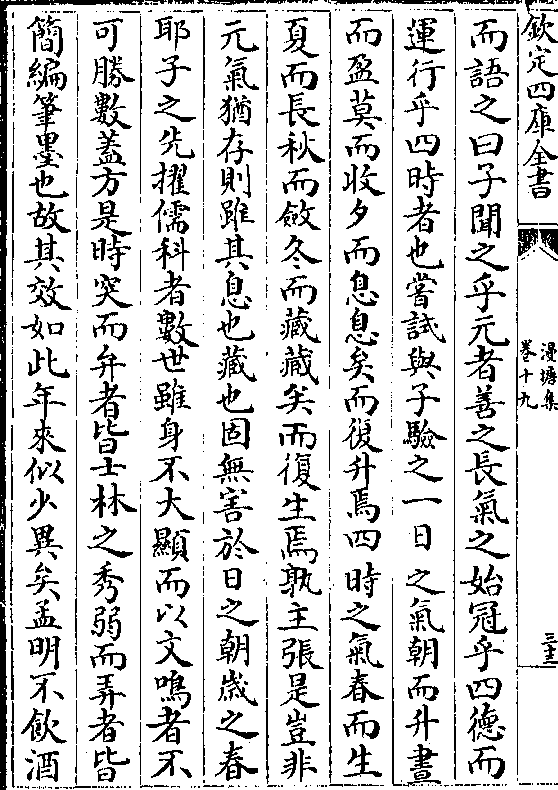 欽定四庫全書
漫塘集
卷十九
三十三
而語之曰子聞之乎元者善之長氣之始冠乎四德而
運行乎四時者也嘗試與子驗之一日之氣朝而升晝
而盈莫而收夕而息息矣而復升焉四時之氣春而生
夏而長秋而斂冬而藏藏矣而復生焉孰主張是豈非
元氣猶存則雖其息也藏也固無害於日之朝歲之春
耶子之先擢儒科者數世雖身不大顯而以文鳴者不
可勝數蓋方是時突而弁者皆士林之秀弱而弄者皆
簡編筆墨也故其效如此年來似少異矣孟明不飲酒